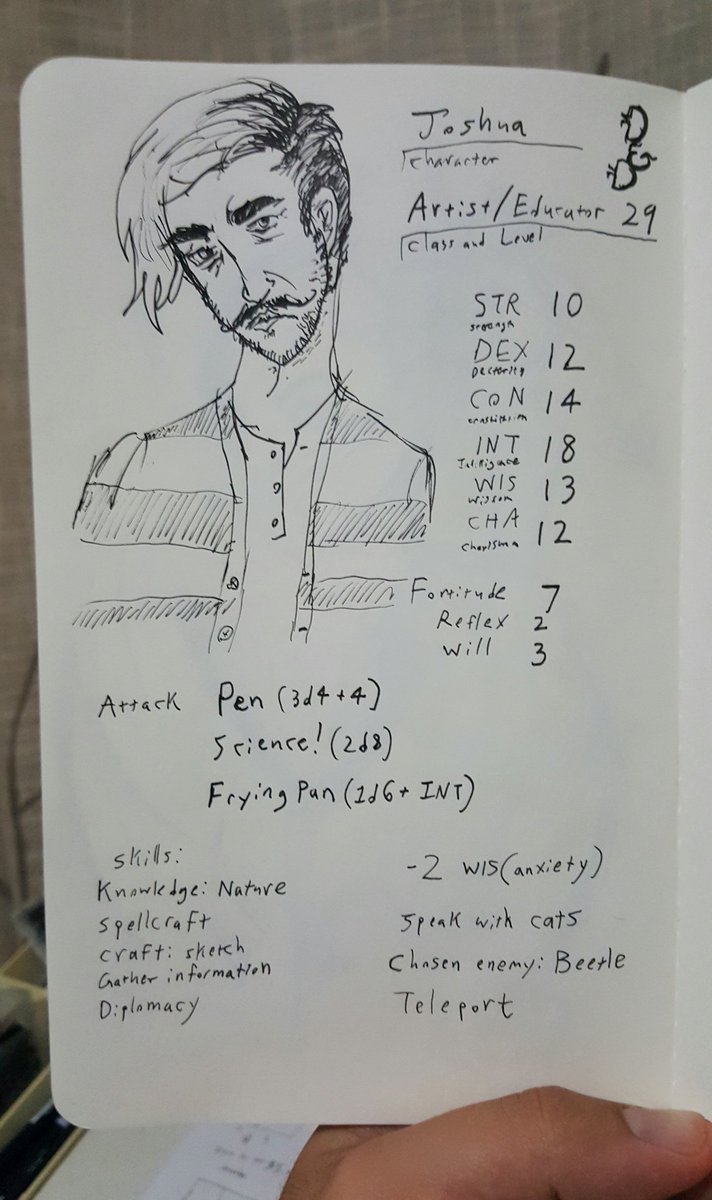 Joshua
character
Artist/Educator 29
Class and Level
STR 10
strength
DEX 12
Dexterity
CON 14
constitution
INT 18
Intelligence
WIS 13
Wisdom
CHA 12
Charisma
Fortitude 7
Reflex 2
Will 3
Attack Pen (3d4+4)
Science! (2d8)
Frying Pan (1d6+ INT)
Skills:
Knowledge: Nature
Spellcraft
craft: sketch
Gather information
Diplomacy
-2 WIS (anxiety)
Speak with cats
Chosen enemy: Beetle
Teleport